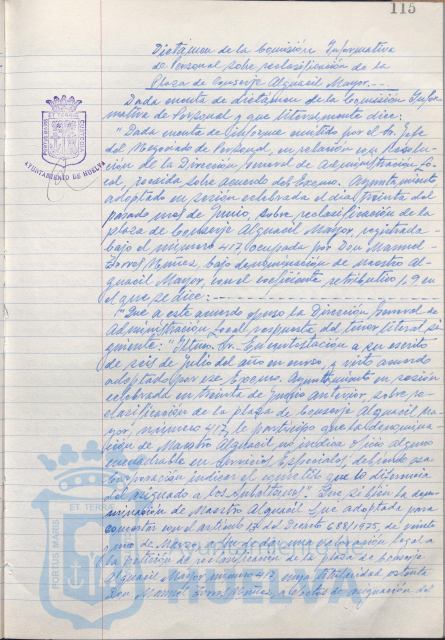 115
Dictámen de la Comisión Informativa
de Personal sobre reclasificación de la
Plaza de Conserje Alguacil Mayor.
Dada cuenta de dictámen de la Comisión Infor-
mativa de Personal y que literalmente dice:
"Dada cuenta de informe emitido por el Sr. Jefe
del Negociado de Personal, en relación con Resolu-
ción de la Dirección General de Administración Lo-
cal, recaida sobre acuerdo del Excmo. Ayuntamiento
adoptado en sesión celebrada el dia treinta del
pasado mes de Junio, sobre reclasificación de la
plaza de Conserje Alguacil Mayor, registrada
bajo el número 417 ocupada por Don Manuel
Núñez, bajo denominación de Maestro Al-
guacil Mayor, con el coeficiente retributivo 1,9 en
el que se dice:
1º Que a este acuerdo opuso la Dirección General de
Administración Local respuesta del tenor literal si-
guiente: "Iltmo. Sr. En contestación a su escrito
de seis de Julio del año en curso, y visto acuerdo
adoptado por ese Excmo. Ayuntamiento en sesión
celebrada en treinta de Junio anterior, sobre re-
clasificación de la plaza de Conserje Alguacil Ma-
yor, número 417, le participo que la denomina-
ción de Maestro Alguacil no indica oficio alguno
encuadrable en Servicios Especiales, debiendo esa
Corporación indicar el cometido que lo diferencia
del asignado a los Subalternos. Que si bien la deno-
minación de Maestro Alguacil fue adoptada para
con el artículo 17 del Decreto 688/1975, de veinte
y uno de Marzo, a fin de dar una valoración legal a
la petición de reclasificación de la plaza de Conserje
Alguacil Mayor número 417 cuya titularidad ostenta
Don Manuel Núñez, a efectos de asignación del
AYUNTAMIENTO DE HUELVA
PORTUS MARIS
ET TERRE
Ayuntamiento de
HUELVA